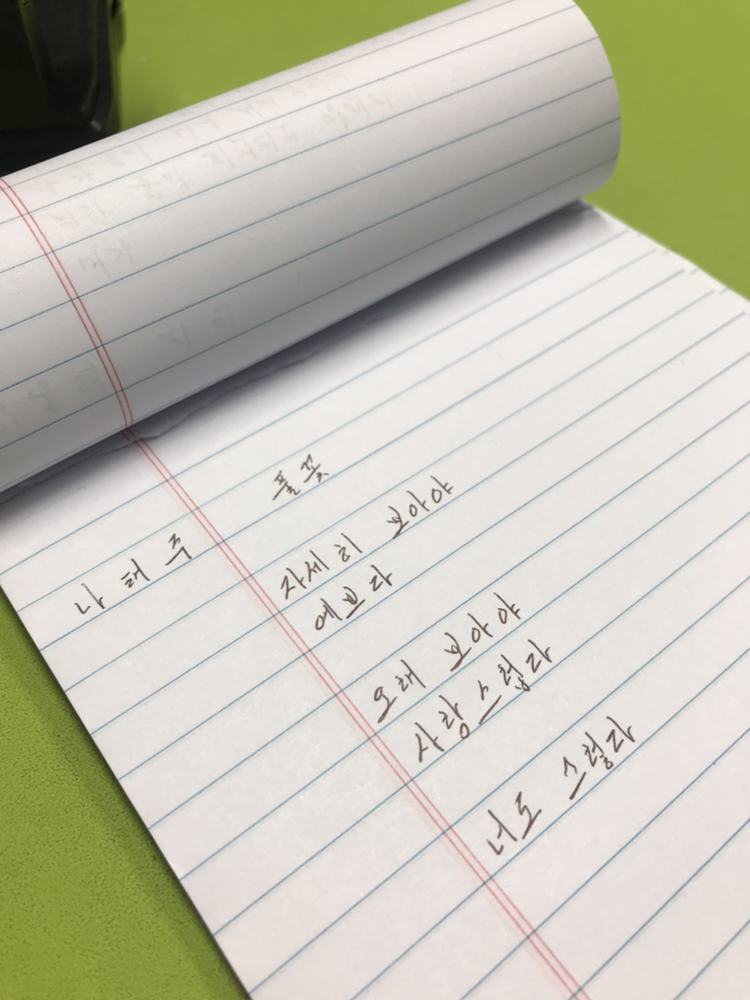 풀꽃
나태주
자세히 보아야
예쁘다
오래 보아야
사랑스럽다
너도